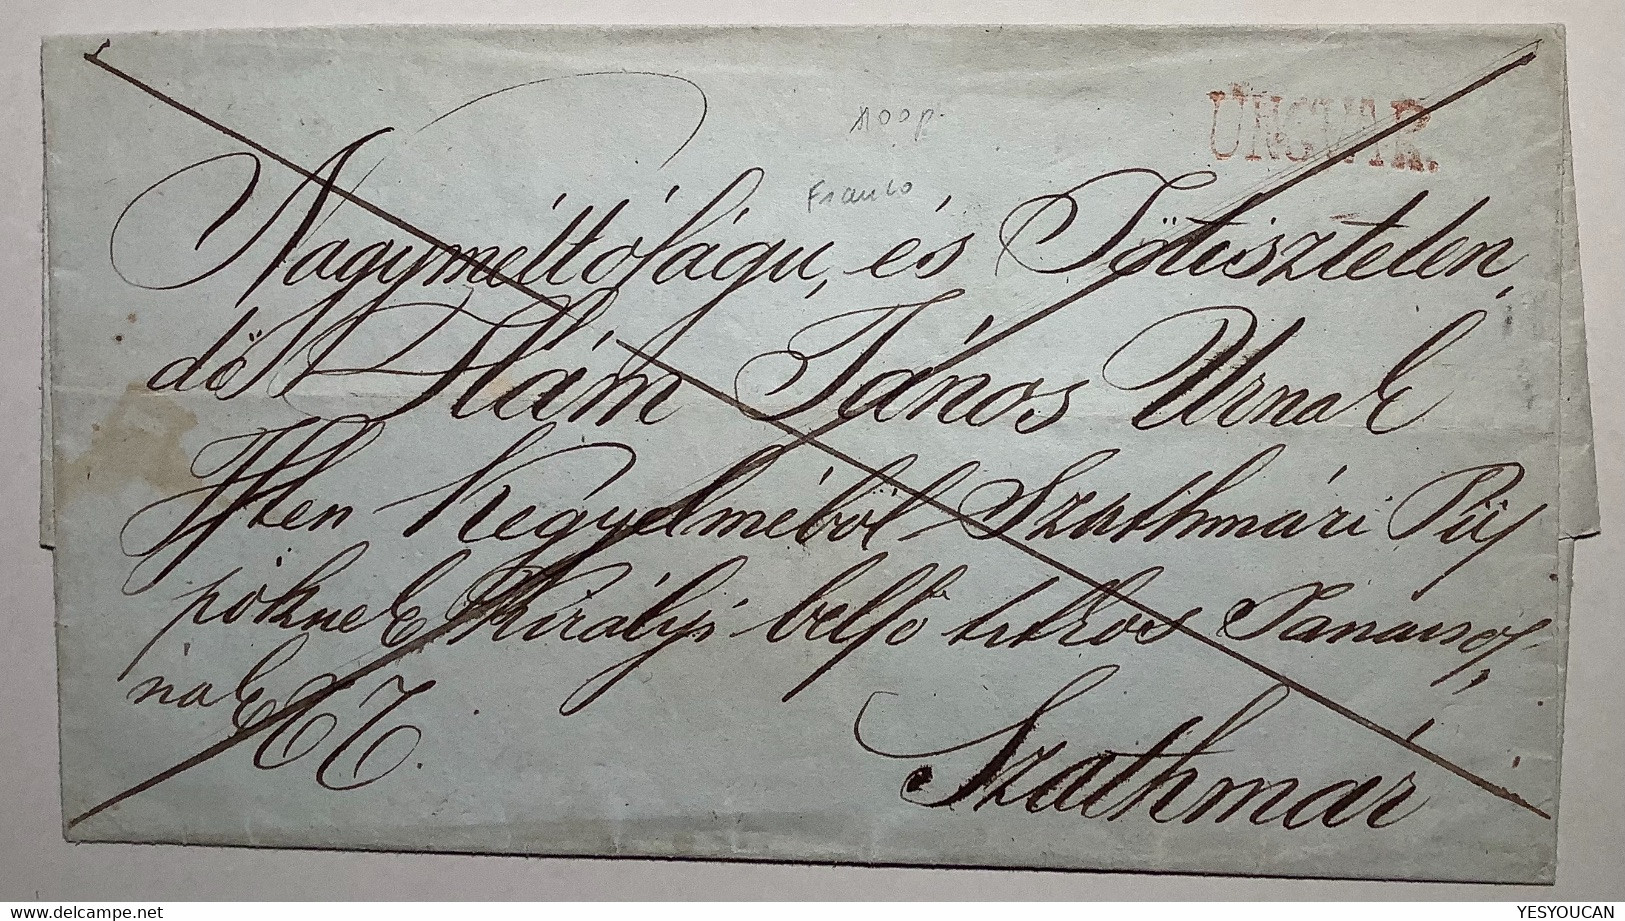 UNGVÁR.
Franco
Nagyméltóságu, és Fötisztelen,
dö Hám János Urnak
Isten Kegyelméböl Szathmári Püs
pöknek Királyi belsö titkos Tanacsos,
nak
Szathmár
YESYOUCAN